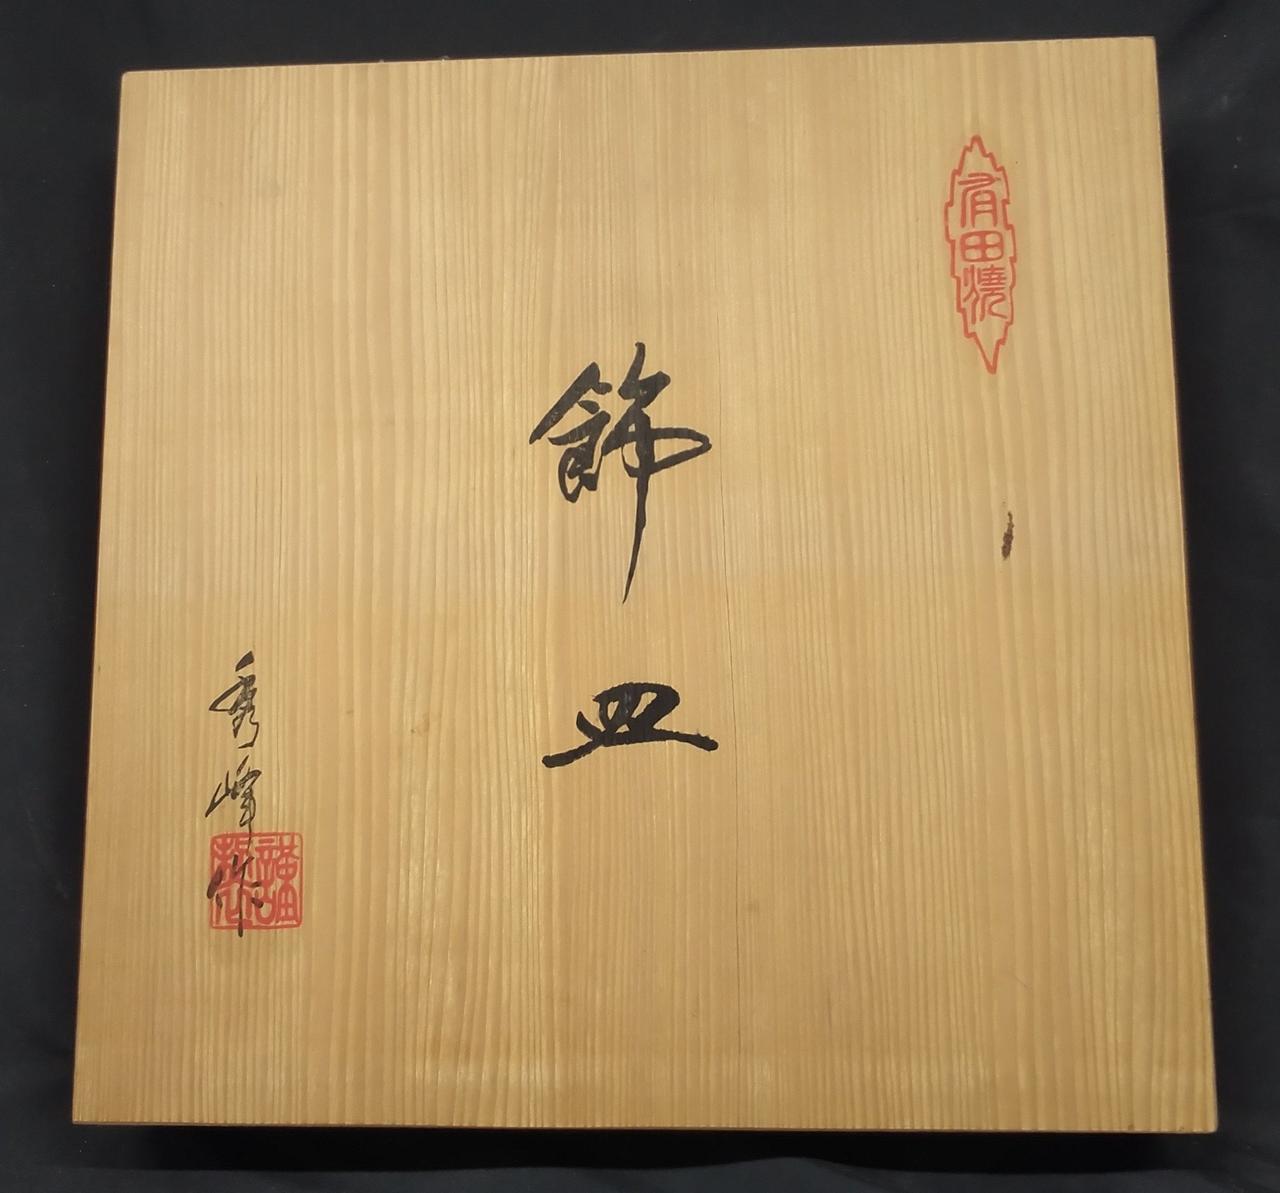 有田焼
飾皿
秀峰作
謹製